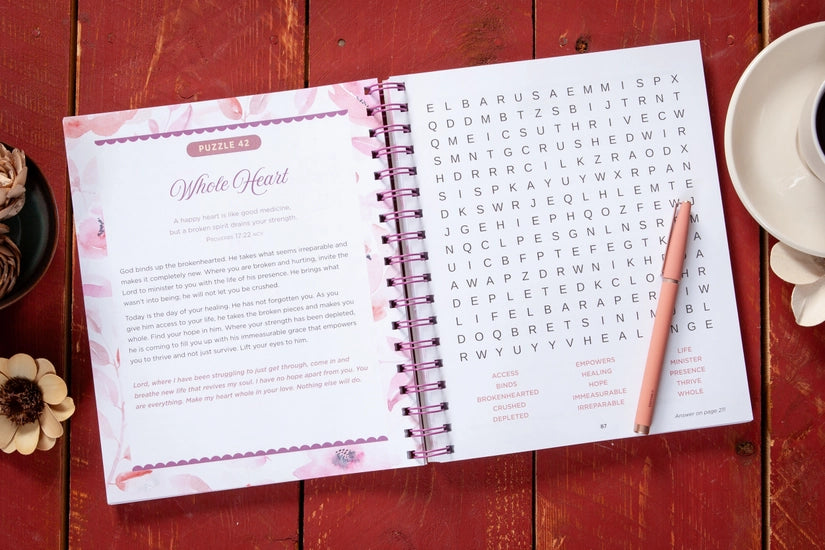 PUZZLE 42
Whole Heart
A happy heart is like good medicine,
but a broken spirit drains your strength.
Proverbs 17:22 NCV
God binds up the brokenhearted. He takes what seems irreparable and
makes it completely new. Where you are broken and hurting, invite the
Lord to minister to you with the life of his presence. He brings what
wasn't into being; he will not let you be crushed.
Today is the day of your healing. He has not forgotten you. As you
give him access to your life, he takes the broken pieces and makes you
whole. Find your hope in him. Where your strength has been depleted,
he is coming to fill you up with his immeasurable grace that empowers
you to thrive and not just survive. Lift your eyes to him.
Lord, where I have been struggling to just get through, come in and
breathe new life that revives my soul. I have no hope apart from you. You
are everything. Make my heart whole in your love. Nothing else will do.
E L B A R U S A E M M I S P X
Q D D M B T Z S B I J T R N T
Q M E I C S U T H R I V E C W
S M N T G C R U S H E D W I R
H D R R R C I L K Z R A O D X
S I S P K A Y U Y W X R P A N
D K S W R J E Q L H L E M T E
J G E H I E P H Q O Z F E W
N Q C L P E S G N L N S R M
U I C B F P T E F E G T K A
A W A P Z D R W N I K H A
D E P L E T E D K C L O H R
L I F E L B A R A P E R I W
D O Q B R E T S I N I M B L
R W Y U Y Y V H E A L N G E
ACCESS
BINDS
BROKENHEARTED
CRUSHED
DEPLETED
EMPOWERS
HEALING
HOPE
IMMEASURABLE
IRREPARABLE
LIFE
MINISTER
PRESENCE
THRIVE
WHOLE
87
Answer on page 211